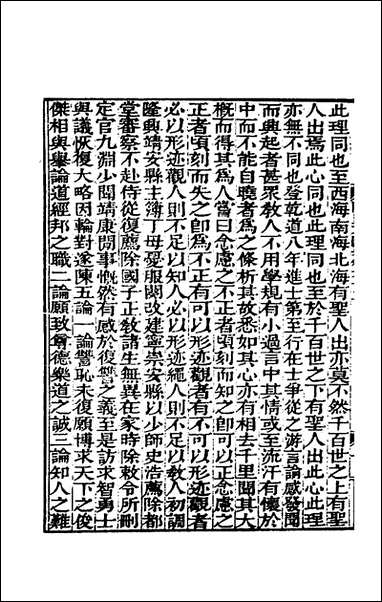 此理同也至西海南海北海有聖人出亦莫不然千百世之上有聖
人出焉此心同也此理同也至於千百世之下有聖人出此心此理
亦無不同也登乾道八年進士第至行在士爭從之游言論感發聞
而興起者甚眾教人不用學規有小過言中其情或至流汗有懷於
中而不能自曉者爲之條析其故悉如其心亦有相去千里聞其大
概而得其爲人嘗曰念慮之不正者頃刻而知之卽可以正念慮之
正者頃刻而失之卽爲不正有可以形迹觀者有不可以形迹觀者
必以形迹觀人則不足以知人必以形迹繩人則不足以敎人初調
隆興靖安縣主簿丁母憂服闋改建寧崇安縣以少師史浩薦除都
堂審察不赴侍從復薦除國子正敎諸生無異在家時除敕令所刪
定官九淵少聞靖康閒事慨然有感於復讐之義至是訪求智勇士
與議恢復大略因輪對遂陳五論一論讐恥未復願博求天下之俊
傑相與舉論道經邦之職二論願致尊德樂道之誠三論知人之難